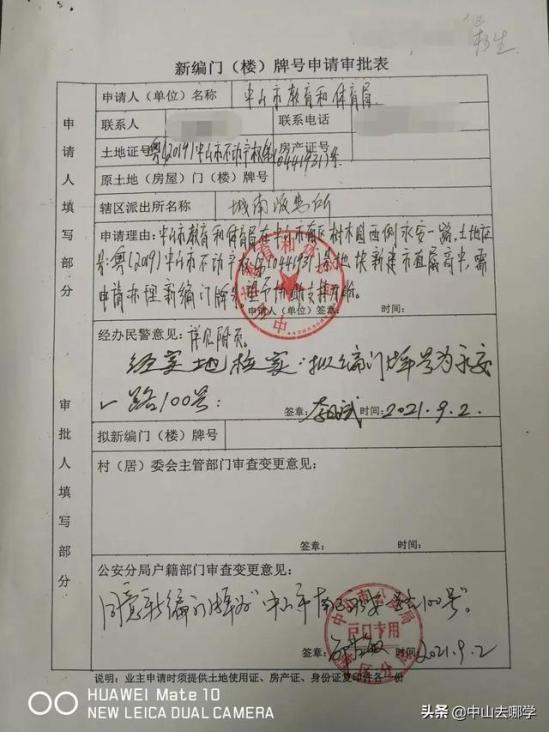 新编门（楼）牌号申请审批表
申请人填写部分
申请人（单位）名称 中山市教育和体育局
联系人 联系电话
土地证号 粤(2019)中山市不动产权第0441931号 房产证号
原土地（房屋）门（楼）牌号
辖区派出所名称 城南派出所
申请理由：中山市教育和体育局在中山市南区树木园西侧永安一路，土地证
号：粤(2019)中山市不动产权第0441931号地块新建市直属高中，需
申请办理新编门牌
申请人（单位）签章： 时间：
审批人填写部分
经办民警意见：详见附页。
经实地核实，拟编门牌号为永安
一路100号。
签章： 时间：2021.9.2.
拟新编门（楼）牌号
村（居）委会主管部门审查变更意见：
签章： 时间：
公安分局户籍部门审查变更意见：
同意新编门牌为"中山市南区永安一路100号"。
户口专用
签章： 时间：2021.9.2
说明：业主申请时须提供土地使用证、房产证、身份证复印件各一份
HUAWEI Mate 10
NEW LEICA DUAL CAMERA
头条 @中山去哪学